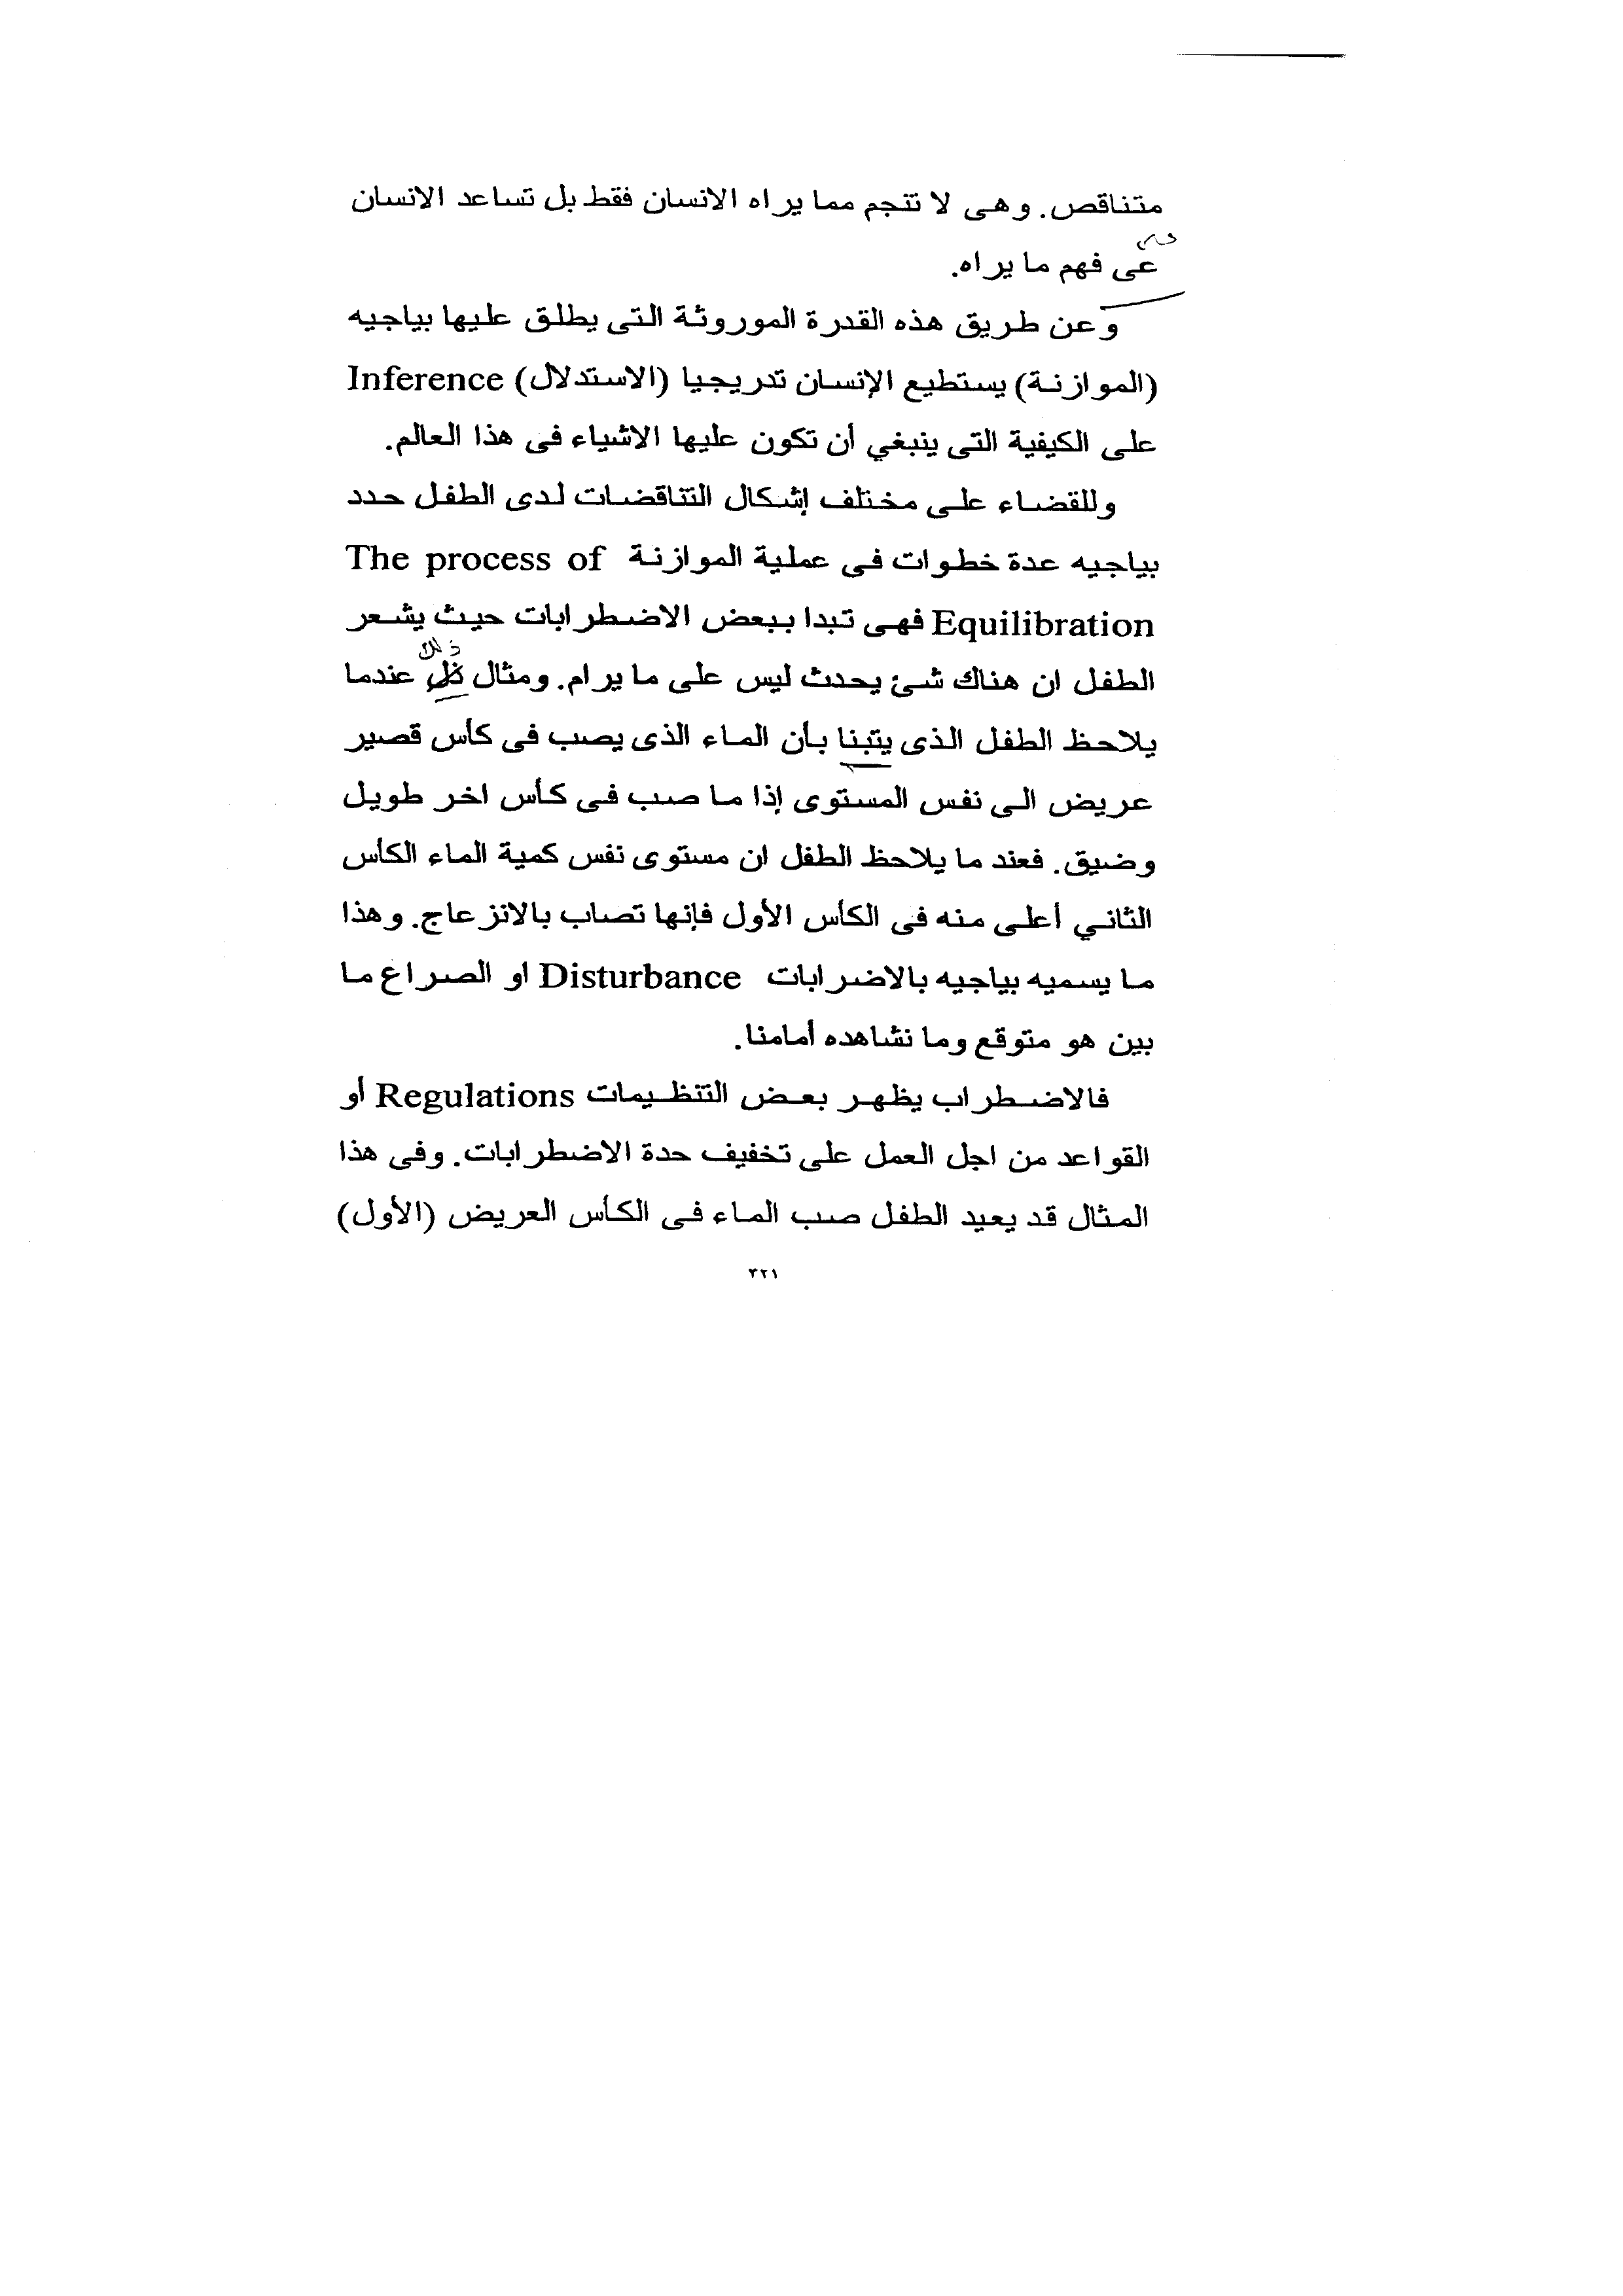 متناقص. وهى لا تنجم مما يراه الانسان فقط بل تساعد الانسان
عى فهم ما يراه.
وعن طريق هذه القدرة الموروثة التى يطلق عليها بياجيه
(الموازنة) يستطيع الإنسان تدريجيا (الاستدلال) Inference
على الكيفية التى ينبغي أن تكون عليها الاشياء فى هذا العالم.
وللقضاء على مختلف إشكال التناقضات لدى الطفل حدد
بياجيه عدة خطوات فى عملية الموازنة The process of
Equilibration فهى تبدا ببعض الاضطرابات حيث يشعر
ذلك
الطفل ان هناك شئ يحدث ليس على ما يرام. ومثال عندما
يلاحظ الطفل الذى يتبنا بأن الماء الذى يصب فى كأس قصير
عريض الى نفس المستوى إذا ما صب فى كأس اخر طويل
وضيق. فعند ما يلاحظ الطفل ان مستوى نفس كمية الماء الكأس
الثاني أعلى منه فى الكأس الأول فإنها تصاب بالانزعاج. وهذا
ما يسميه بياجيه بالاضرابات Disturbance او الصراع ما
بين هو متوقع وما نشاهده أمامنا.
فالاضطراب يظهر بعض التنظيمات Regulations أو
القواعد من اجل العمل على تخفيف حدة الاضطرابات. وفى هذا
المثال قد يعيد الطفل صب الماء فى الكأس العريض (الأول)
٣٢١